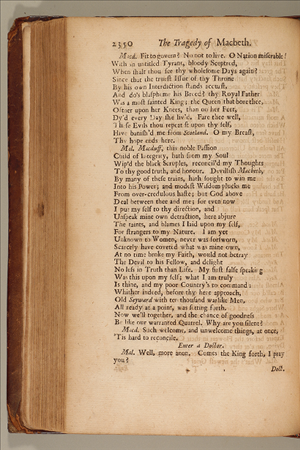 2350 The Tragedy of Macbeth.
Macd. Fit to govern? No not to live. O Nation miserable!
With an untitled Tyrant, bloody Sceptred,
When shalt thou see thy wholesome Days again?
Since that the truest Issue of thy Throne
By his own Interdiction stands accurst,
And do's blaspheme his Breed? thy Royal Father
Was a most sainted King; the Queen that bore thee,
Oftner upon her Knees, than on her Feet,
Dy'd every Day she liv'd. Fare thee well,
These Evils thou repeat'st upon thy self,
Have banish'd me from Scotland. O my Breast,
Thy hope ends here.
Mal. Macduff, this noble Passion
Child of Integrity, hath from my Soul
Wip'd the black Scruples, reconcil'd my Thoughts
To thy good truth, and honour. Devillish Macbeth,
By many of these trains, hath sought to win me
Into his Power; and modest Wisdom plucks me
From over-credulous haste; but God above
Deal between thee and me; for even now
I put my self to thy direction, and
Unspeak mine own detraction, here abjure
The taints, and blames I laid upon my self,
For strangers to my Nature. I am yet
Unknown to Women, never was forsworn,
Scarcely have coveted what was mine own,
At no time broke my Faith, would not betray
The Devil to his Fellow, and delight
No less in Truth than Life. My first false speaking
Was this upon my self; what I am truly
Is thine, and my poor Country's to command:
Whither indeed, before thy here approach,
Old Seyward with ten thousand warlike Men,
All ready at a point, was setting forth.
Now we'll together, and the chance of goodness
Be like our warranted Quarrel. Why are you silent?
Macd. Such welcome, and unwelcome things, at once,
'Tis hard to reconcile.
Enter a Doctor.
Mal. Well, more anon. Comes the King forth, I pray
you?
Doct.